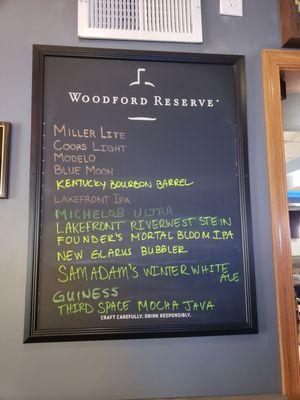 WOODFORD RESERVE
MILLER LITE
COORS LIGHT
MODELO
BLUE MOON
KENTUCKY BOURBON BARREL
LAKEFRONT IPA
MICHELOB ULTRA
LAKEFRONT RIVERWEST STEIN
FOUNDER'S MORTAL BLOOM IPA
NEW GLARUS BUBBLER
SAM ADAM'S WINTER WHITE
ALE
GUINESS
THIRD SPACE MOCHA JAVA
CRAFT CAREFULLY. DRINK RESPONSIBLY.